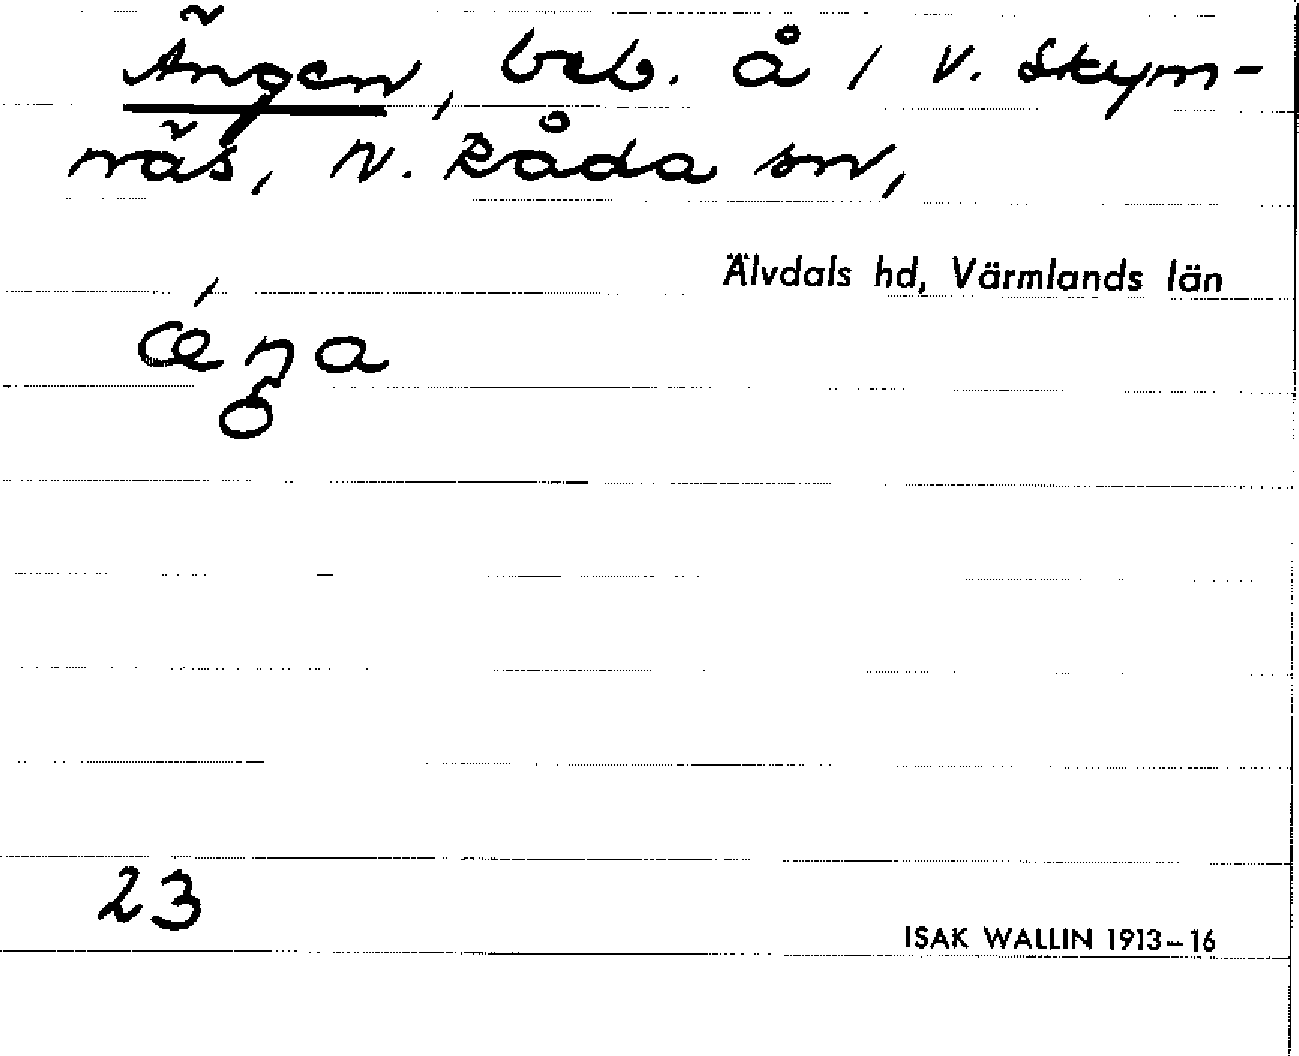 Ängen, beb. å / V. Skym-
näs, N. Råda sn,
Älvdals hd, Värmlands län
23
ISAK WALLIN 1913–16